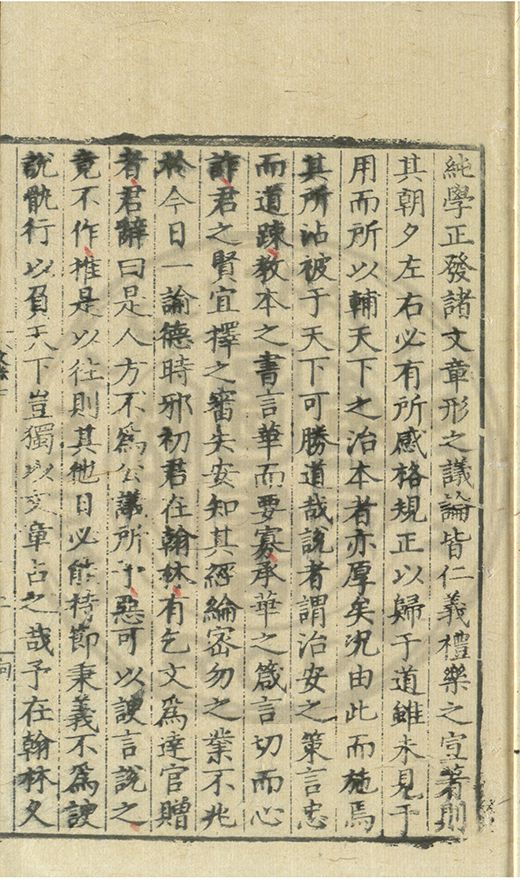 純學正發諸文章形之議論皆仁義禮樂之宣著則
其朝夕左右必有所感格規正以歸于道雖未見于
用而所以輔天下之治本者亦厚矣況由此而施焉
其所沾被于天下可勝道哉說者謂治安之策言忠
而道踈教本之書言華而要寡承華之箴言切而心
詐君之賢宜擇之審夫安知其經綸密勿之業不兆
於今日一諭德時邪初君在翰林有乞文爲達官贈
者君辭曰是人方不爲公議所予惡可以諛言說之
竟不作推是以往則其他日必能持節秉義不爲諛
說骫行以負天下豈獨以文章占之哉予在翰林久